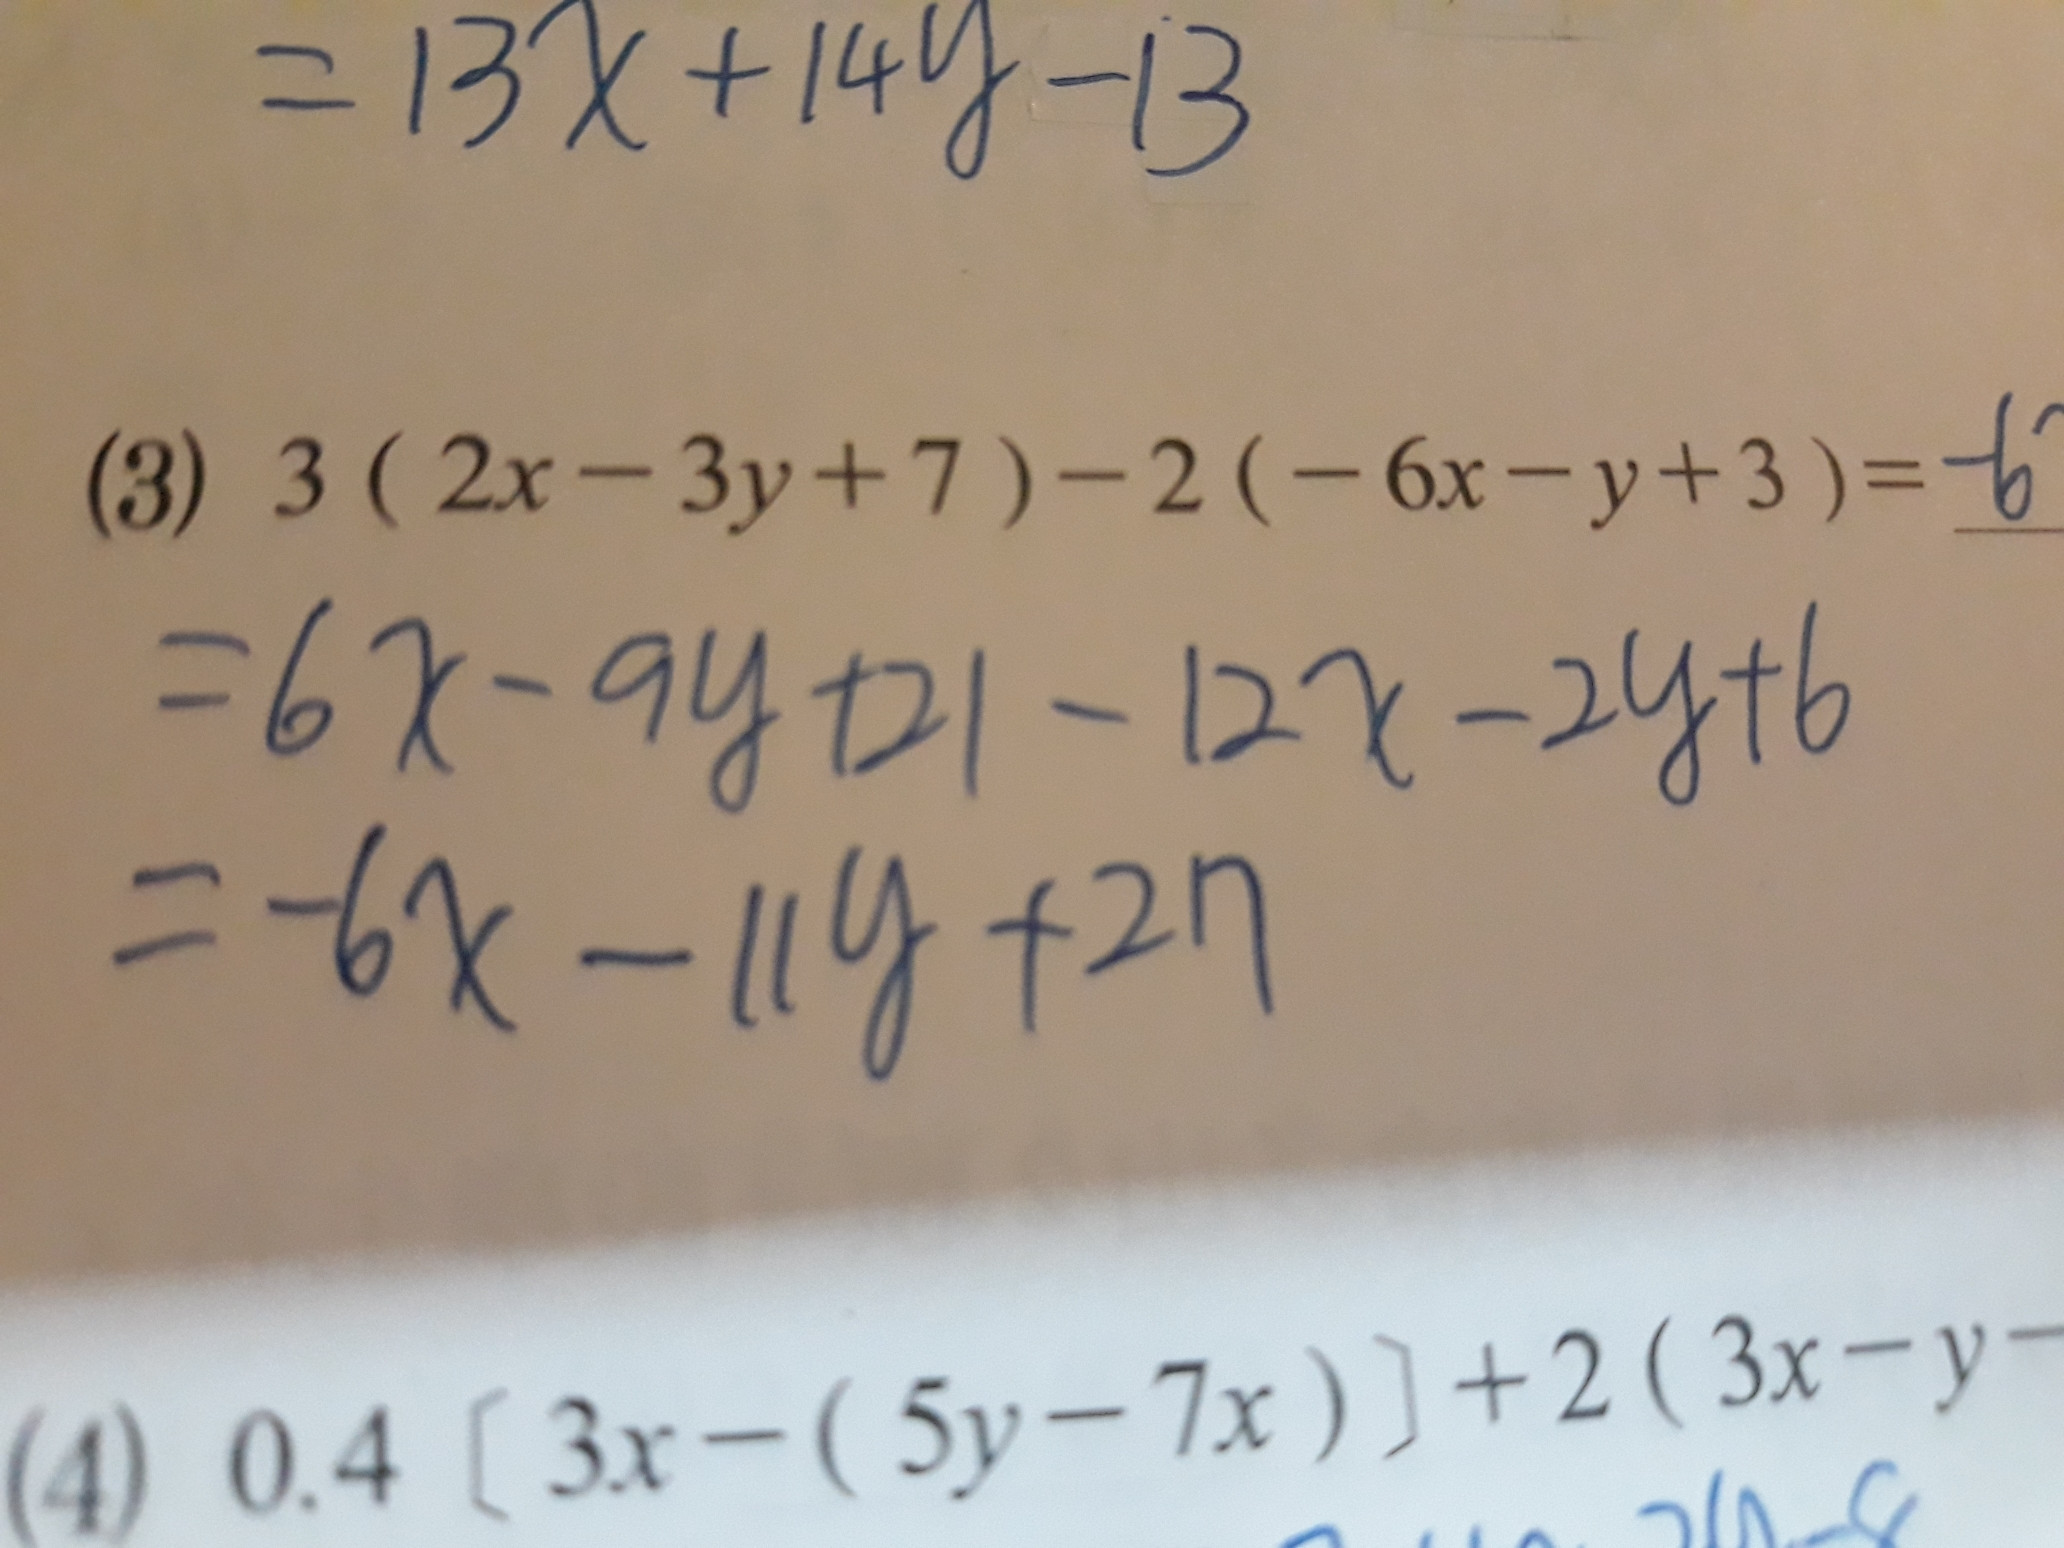 = 13x + 14y - 13
(3) 3 ( 2x - 3y + 7 ) - 2 ( - 6x - y + 3 ) = -6
= 6x - 9y + 21 - 12x - 2y + 6
= -6x - 11y + 27
(4) 0.4 [ 3x - ( 5y - 7x ) ] + 2 ( 3x - y -